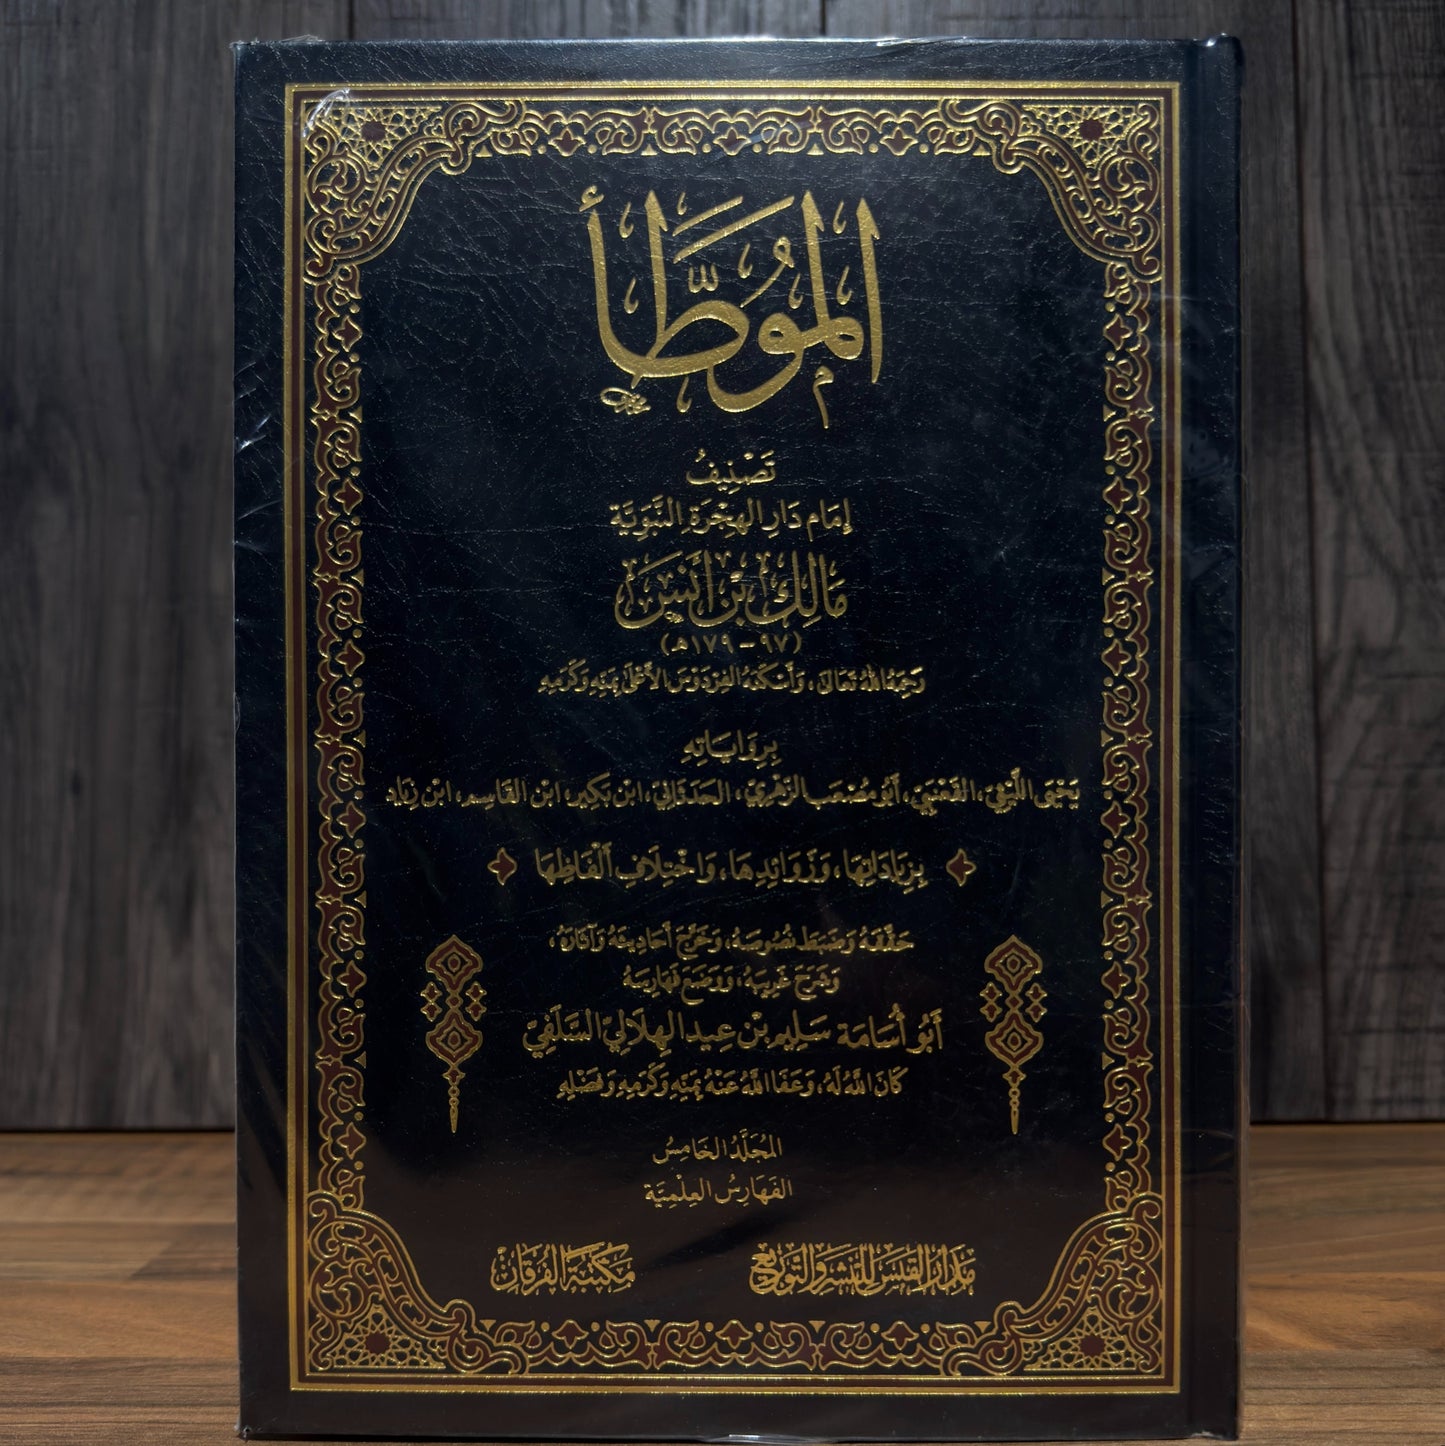 الموطَّأ
تَصْنِيفُ
إِمَامِ دَارِ الهِجْرَةِ النَّبَوِيَّةِ
مَالِكِ بْنِ أَنَسٍ
(٩٧ - ١٧٩ هـ)
رَحِمَهُ اللهُ تَعَالَى، وَأَسْكَنَهُ الفِرْدَوْسَ الأَعْلَى بِمَنِّهِ وَكَرَمِهِ
بِرِوَايَاتِهِ
يَحْيَى اللَّيْثِيِّ، القَعْنَبِيِّ، أَبُو مُصْعَبٍ الزُّهْرِيِّ، الحَدَثَانِيِّ، ابْنِ بُكَيْرٍ، ابْنِ القَاسِمِ، ابْنِ زِيَادٍ
بِزِيَادَاتِهَا، وَزَوَائِدِهَا، وَاخْتِلَافِ أَلْفَاظِهَا
حَقَّقَهُ وَضَبَطَ نُصُوصَهُ، وَخَرَّجَ أَحَادِيثَهُ وَآثَارَهُ،
وَشَرَحَ غَرِيبَهُ، وَوَضَعَ فَهَارِسَهُ
أَبُو أُسَامَةَ سَلِيمُ بْنُ عِيدٍ الهِلَالِيُّ السَّلَفِيُّ
كَانَ اللهُ لَهُ، وَعَفَا اللهُ عَنْهُ بِمَنِّهِ وَكَرَمِهِ وَفَضْلِهِ
المُجَلَّدُ الخَامِسُ
الفَهَارِسُ العِلْمِيَّةُ
مدار القبس للنشر والتوزيع
مكتبة الفرقان